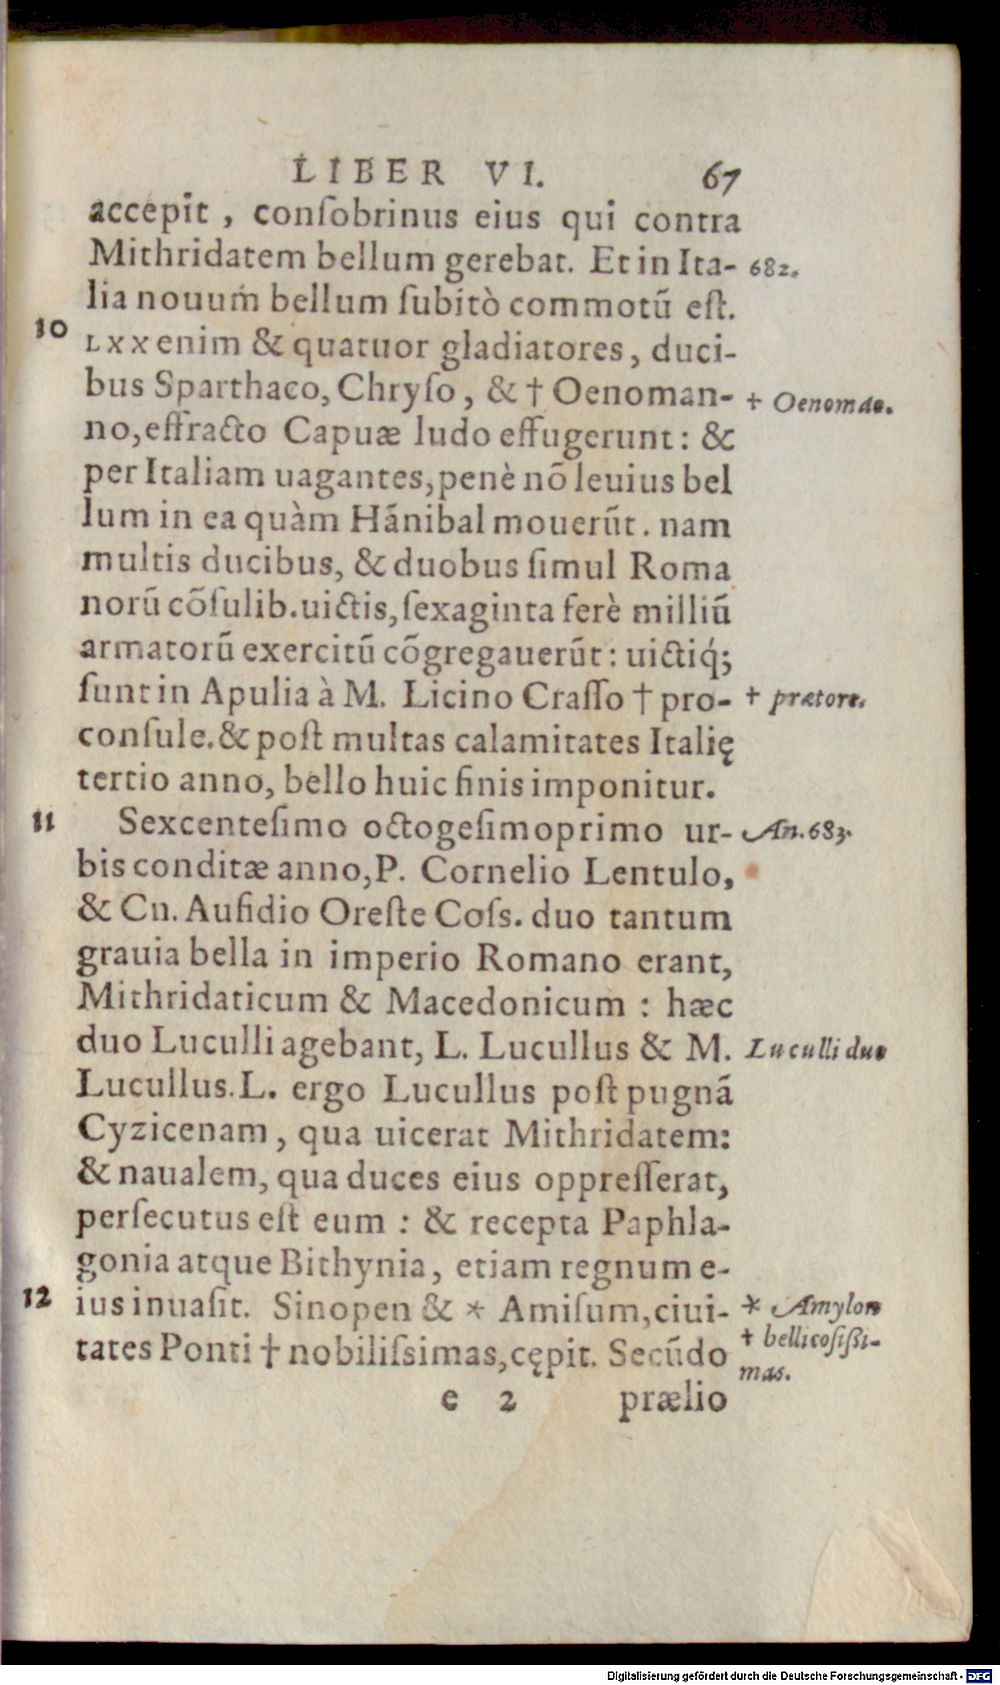 LIBER VI. 67
accepit, conſobrinus eius qui contra
Mithridatem bellum gerebat. Et in Ita- 682.
lia nouum bellum ſubitò commotũ eſt.
10 LXX enim & quatuor gladiatores, duci-
bus Sparthaco, Chryſo, & † Oenoman- † Oenomao.
no, effracto Capuæ ludo effugerunt: &
per Italiam uagantes, penè nõ leuius bel
lum in ea quàm Hãnibal mouerũt. nam
multis ducibus, & duobus ſimul Roma
norũ cõſulib. uictis, ſexaginta ferè milliũ
armatorũ exercitũ cõgregauerũt: uictiq́;
ſunt in Apulia à M. Licino Craſſo † pro- † prætore.
conſule. & poſt multas calamitates Italię
tertio anno, bello huic finis imponitur.
11 Sexcenteſimo octogeſimoprimo ur- An. 683.
bis conditæ anno, P. Cornelio Lentulo,
& Cn. Aufidio Oreſte Coſs. duo tantum
grauia bella in imperio Romano erant,
Mithridaticum & Macedonicum: hæc
duo Luculli agebant, L. Lucullus & M. Luculli duo
Lucullus. L. ergo Lucullus poſt pugnã
Cyzicenam, qua uicerat Mithridatem:
& naualem, qua duces eius oppreſſerat,
perſecutus eſt eum: & recepta Paphla-
gonia atque Bithynia, etiam regnum e-
12 ius inuaſit. Sinopen & * Amiſum, ciui- * Amylon
tates Ponti † nobiliſsimas, cępit. Secũdo † bellicoſißi-
mas.
e 2 prælio
Digitalisierung gefördert durch die Deutsche Forschungsgemeinschaft - DFG